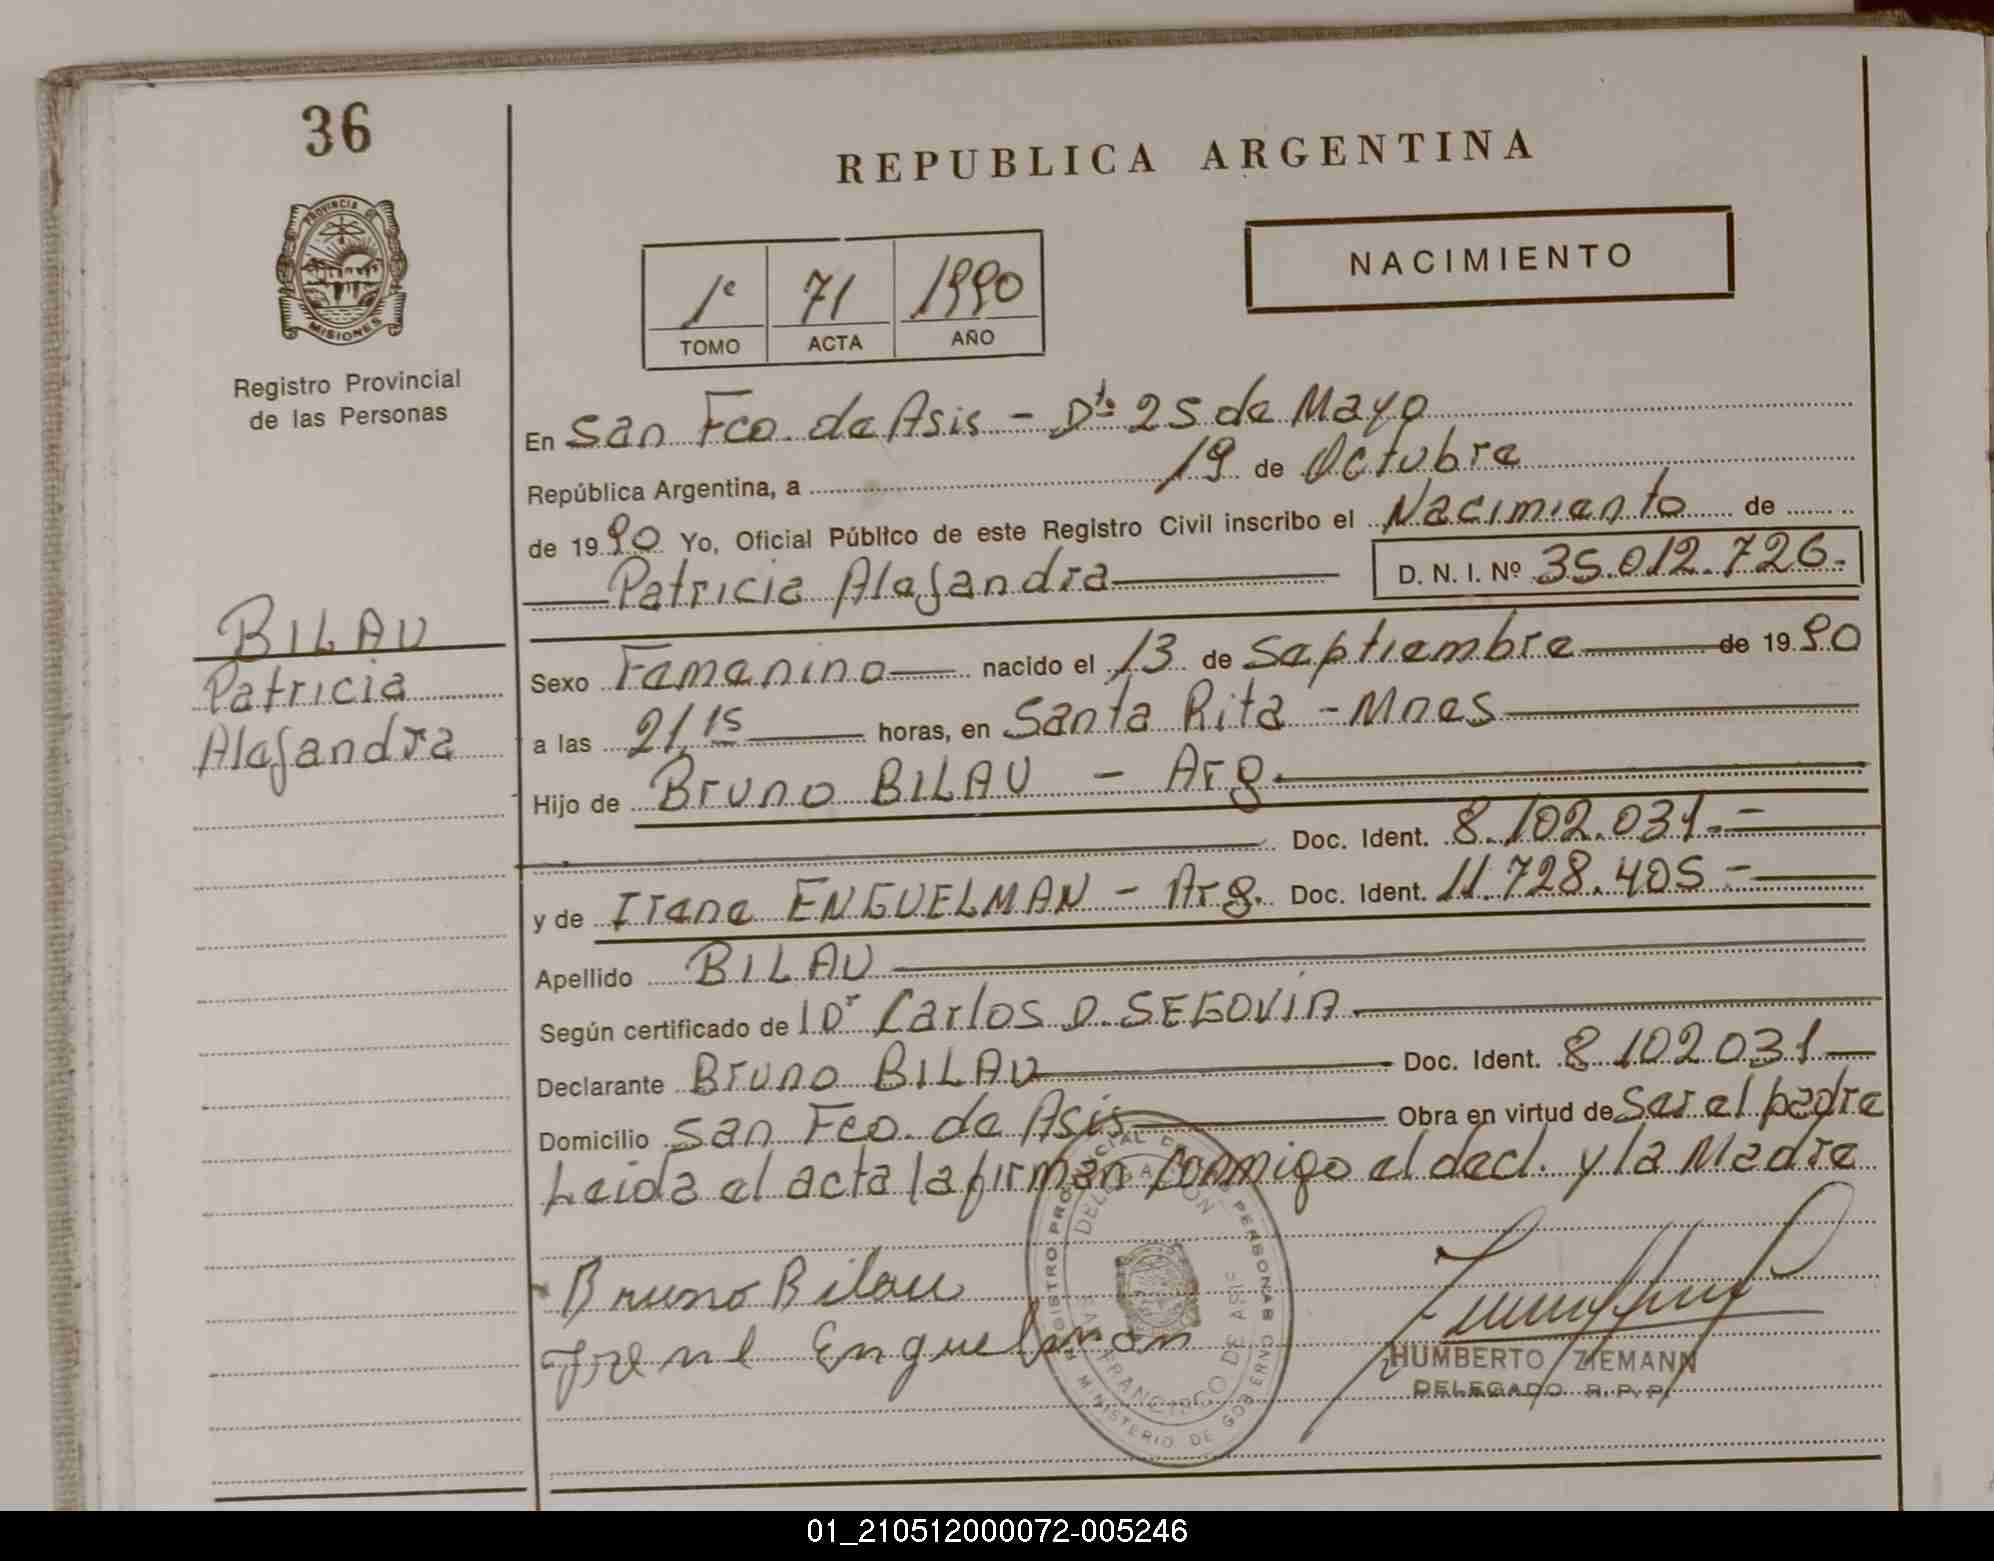 36
REPUBLICA ARGENTINA
PROVINCIA DE
MISIONES
Registro Provincial
de las Personas
NACIMIENTO
1º 71 1990
TOMO ACTA AÑO
En San Fco. de Asis - Dto 25 de Mayo
República Argentina, a 19 de Octubre
de 1990 Yo, Oficial Público de este Registro Civil inscribo el Nacimiento de
Patricia Alejandra D. N. I. Nº 35.012.726.-
BILAU
Patricia
Alejandra
Sexo Femenino nacido el 13 de Septiembre de 1990
a las 21,15 horas, en Santa Rita - Mnes
Hijo de Bruno BILAU - Arg.
Doc. Ident. 8.102.031.-
y de Irene ENGUELMAN - Arg. Doc. Ident. 11.728.405 -
Apellido BILAU
Según certificado de Dr Carlos D. SEGOVIA
Declarante Bruno BILAU Doc. Ident. 8.102.031
Domicilio San Fco. de Asis Obra en virtud de Ser el padre
Leida el acta la firman conmigo el decl. y la Madre
REGISTRO PROVINCIAL DE PERSONAS
DELEGACION
FRANCISCO DE ASIS
MINISTERIO DE GOBIERNO
Bruno Bilau
Irene Enguelman
HUMBERTO ZIEMANN
DELEGADO R. P. P.
01_210512000072-005246